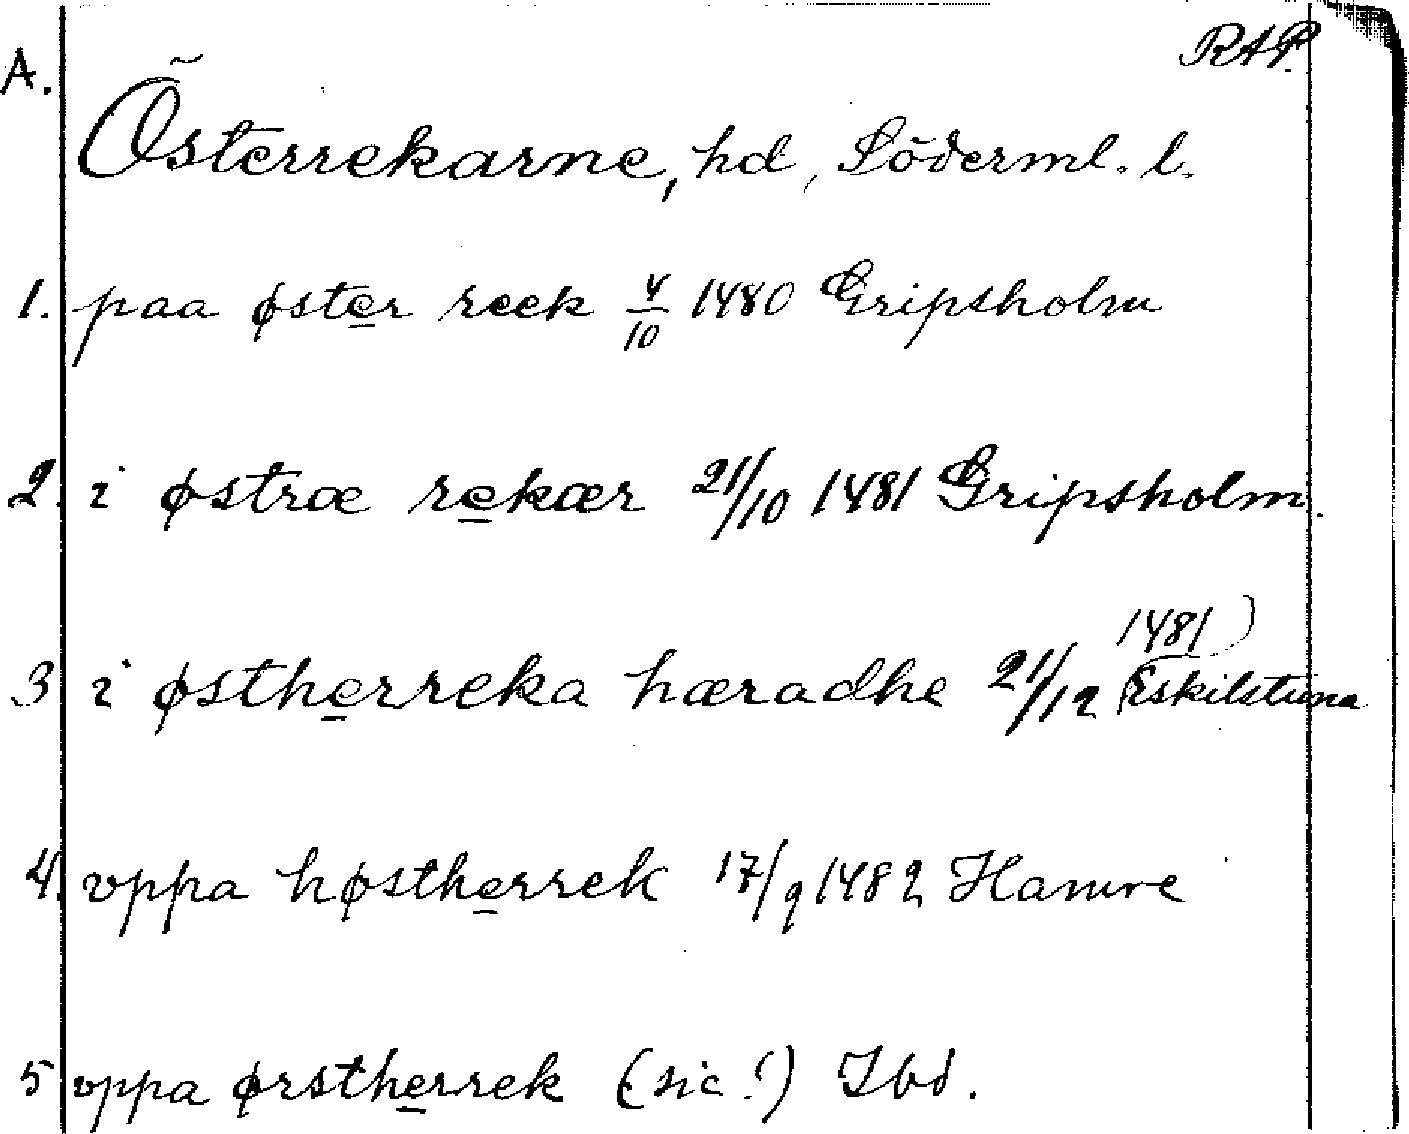 RAP.
A. Österrekarne, hd, Söderml. l.
1. paa øster reek 4/10 1480 Gripsholm
2. i østræ rekær 21/10 1481 Gripsholm.
1481)
3 i østherreka hæradhe 21/12 (Eskilstuna
4. vppa høstherrek 17/9 1482 Hamre
5 vppa ørstherrek (sic!) Ibd.